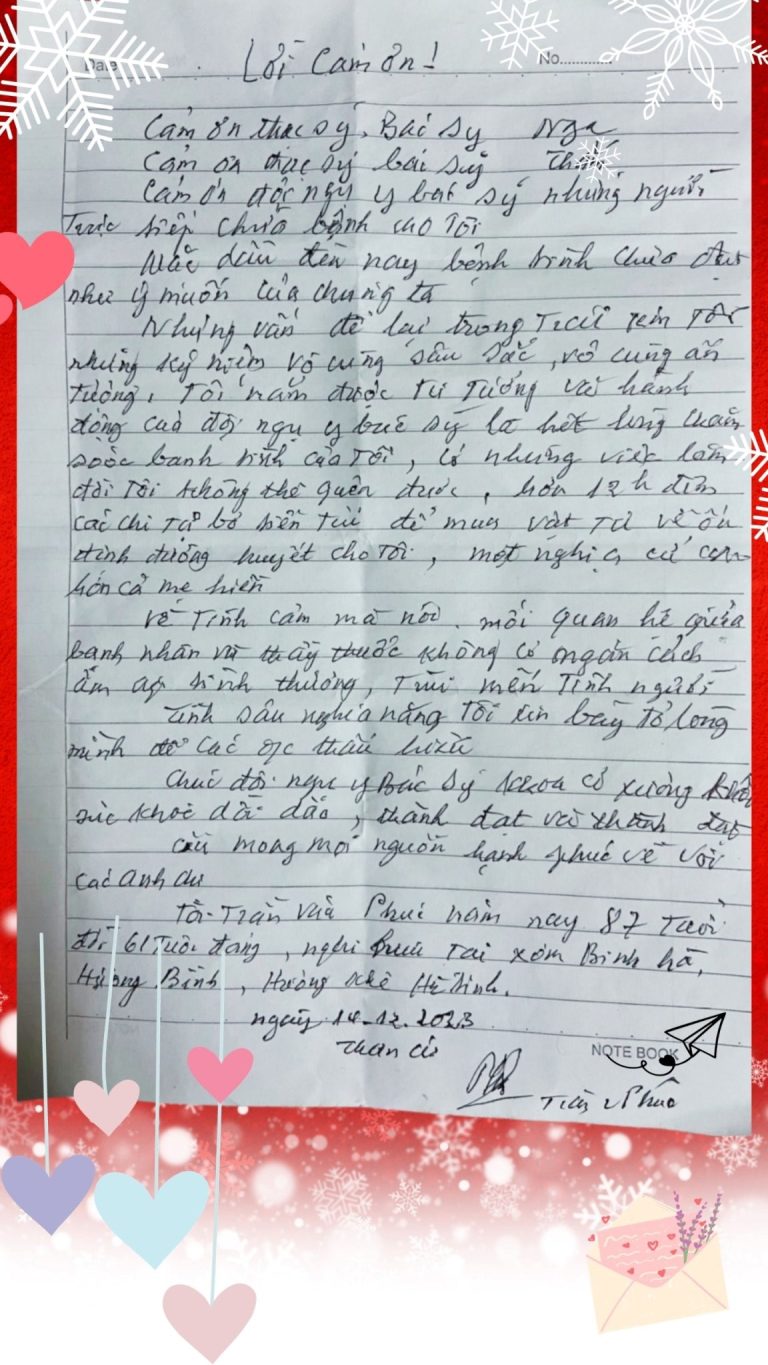 Date
Lời cảm ơn!
No............
Cảm ơn thạc sý, Bác sỹ Nga
Cảm ơn thạc sỹ bác sỹ
Cảm ơn đội ngũ y bác sỹ những người
trực tiếp chữa bệnh cho Tôi
Mặc dầu đến nay bệnh tình chưa đạt
như ý muốn của chúng ta
Nhưng vẫn để lại trong Tôi
những kỷ niệm vô cùng sâu sắc, vô cùng ấn
tượng, Tôi nắm được Tư Tưởng và hành
động của đội ngũ y bác sỹ là hết lòng chăm
sóc bệnh tình của Tôi, có những việc làm
đời Tôi không thể quên được, hơn 12h đêm
các chị Tự bỏ tiền Túi để mua vật Tư về ổn
định đường huyết cho Tôi, một nghĩa cử cao
hơn cả mẹ hiền
Về Tình cảm mà nói. mối quan hệ giữa
bệnh nhân và thầy thuốc không có ngăn cách
ấm áp tình thương, Trìu mến Tình người
Tình sâu nghĩa nặng Tôi xin bày tỏ lòng
mình để các thấu hiểu
Chúc đội ngũ y Bác sỹ khoa cơ xương khớp
sức khỏe dồi dào, thành đạt và thành đạt
cầu mong mọi nguồn hạnh phúc về với
các anh chị
Tôi Trần Phúc năm nay 87 Tuổi
đời 61 Tuổi đảng, nghỉ hưu Tại xóm Bình hà,
Hương Bình, Hương Khê Hà Tĩnh.
ngày 14-12.2023
Thân ái
NOTE BOOK
Trần Phúc